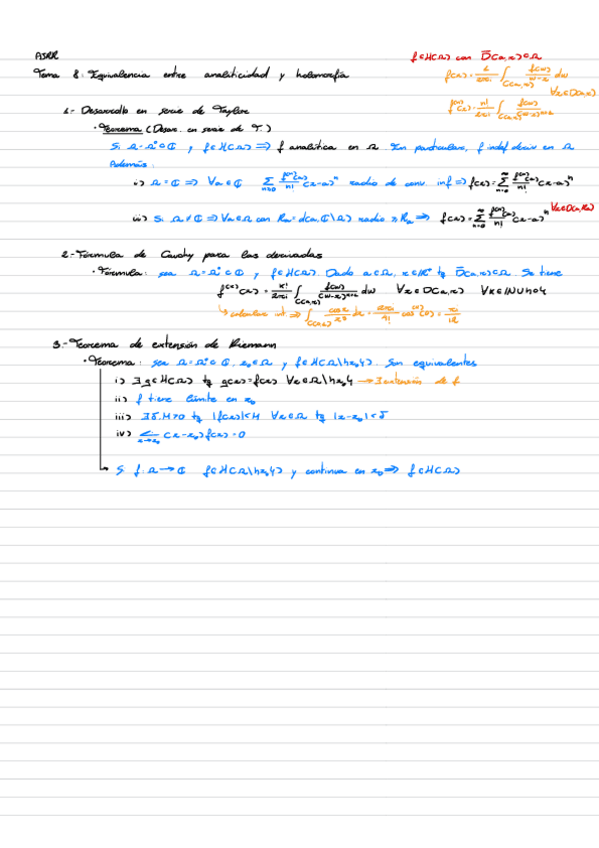 ASRR
f∈H(Ω) con D̅(a,r)⊂Ω
Tema 8: Equivalencia entre analiticidad y holomorfía
f(z) = 1/2πi ∫_C(a,r) f(w)/(w-z) dw
∀z∈D(a,r)
1.- Desarrollo en serie de Taylor
· Teorema (Desarr. en serie de T.)
Si Ω=Ω°⊂ℂ y f∈H(Ω) ⟹ f analítica en Ω En particular, f indef deriv en Ω
Además:
i) Ω=ℂ ⟹ ∀a∈ℂ Σ_{n=0}^∞ f⁽ⁿ⁾(a)/n! (z-a)ⁿ radio de conv. inf ⟹ f(z)=Σ_{n=0}^∞ f⁽ⁿ⁾(a)/n! (z-a)ⁿ
ii) Si Ω≠ℂ ⟹ ∀a∈Ω con Ra=d(a,ℂ\Ω) radio ≥Ra ⟹ f(z)=Σ_{n=0}^∞ f⁽ⁿ⁾(a)/n! (z-a)ⁿ ∀z∈D(a,Ra)
2.- Fórmula de Cauchy para las derivadas
· Fórmula: sea Ω=Ω°⊂ℂ y f∈H(Ω). Dado a∈Ω, r∈ℝ⁺ tq D̅(a,r)⊂Ω. Se tiene
f⁽ᵏ⁾(z) = k!/2πi ∫_C(a,r) f(w)/(w-z)ᵏ⁺¹ dw ∀z∈D(a,r) ∀k∈ℕ∪{0}
↳ calcular int. ⟹
3.- Teorema de extensión de Riemann
· Teorema: sea Ω=Ω°⊂ℂ, z₀∈Ω y f∈H(Ω\{z₀}). Son equivalentes
i) ∃g∈H(Ω) tq g(z)=f(z) ∀z∈Ω\{z₀} → ∃ extensión de f
ii) f tiene límite en z₀
iii) ∃δ,M>0 tq |f(z)|<M ∀z∈Ω tq |z-z₀|<δ
iv) lim_{z→z₀} (z-z₀)f(z)=0
↳ Si f:Ω→ℂ f∈H(Ω\{z₀}) y continua en z₀ ⟹ f∈H(Ω)